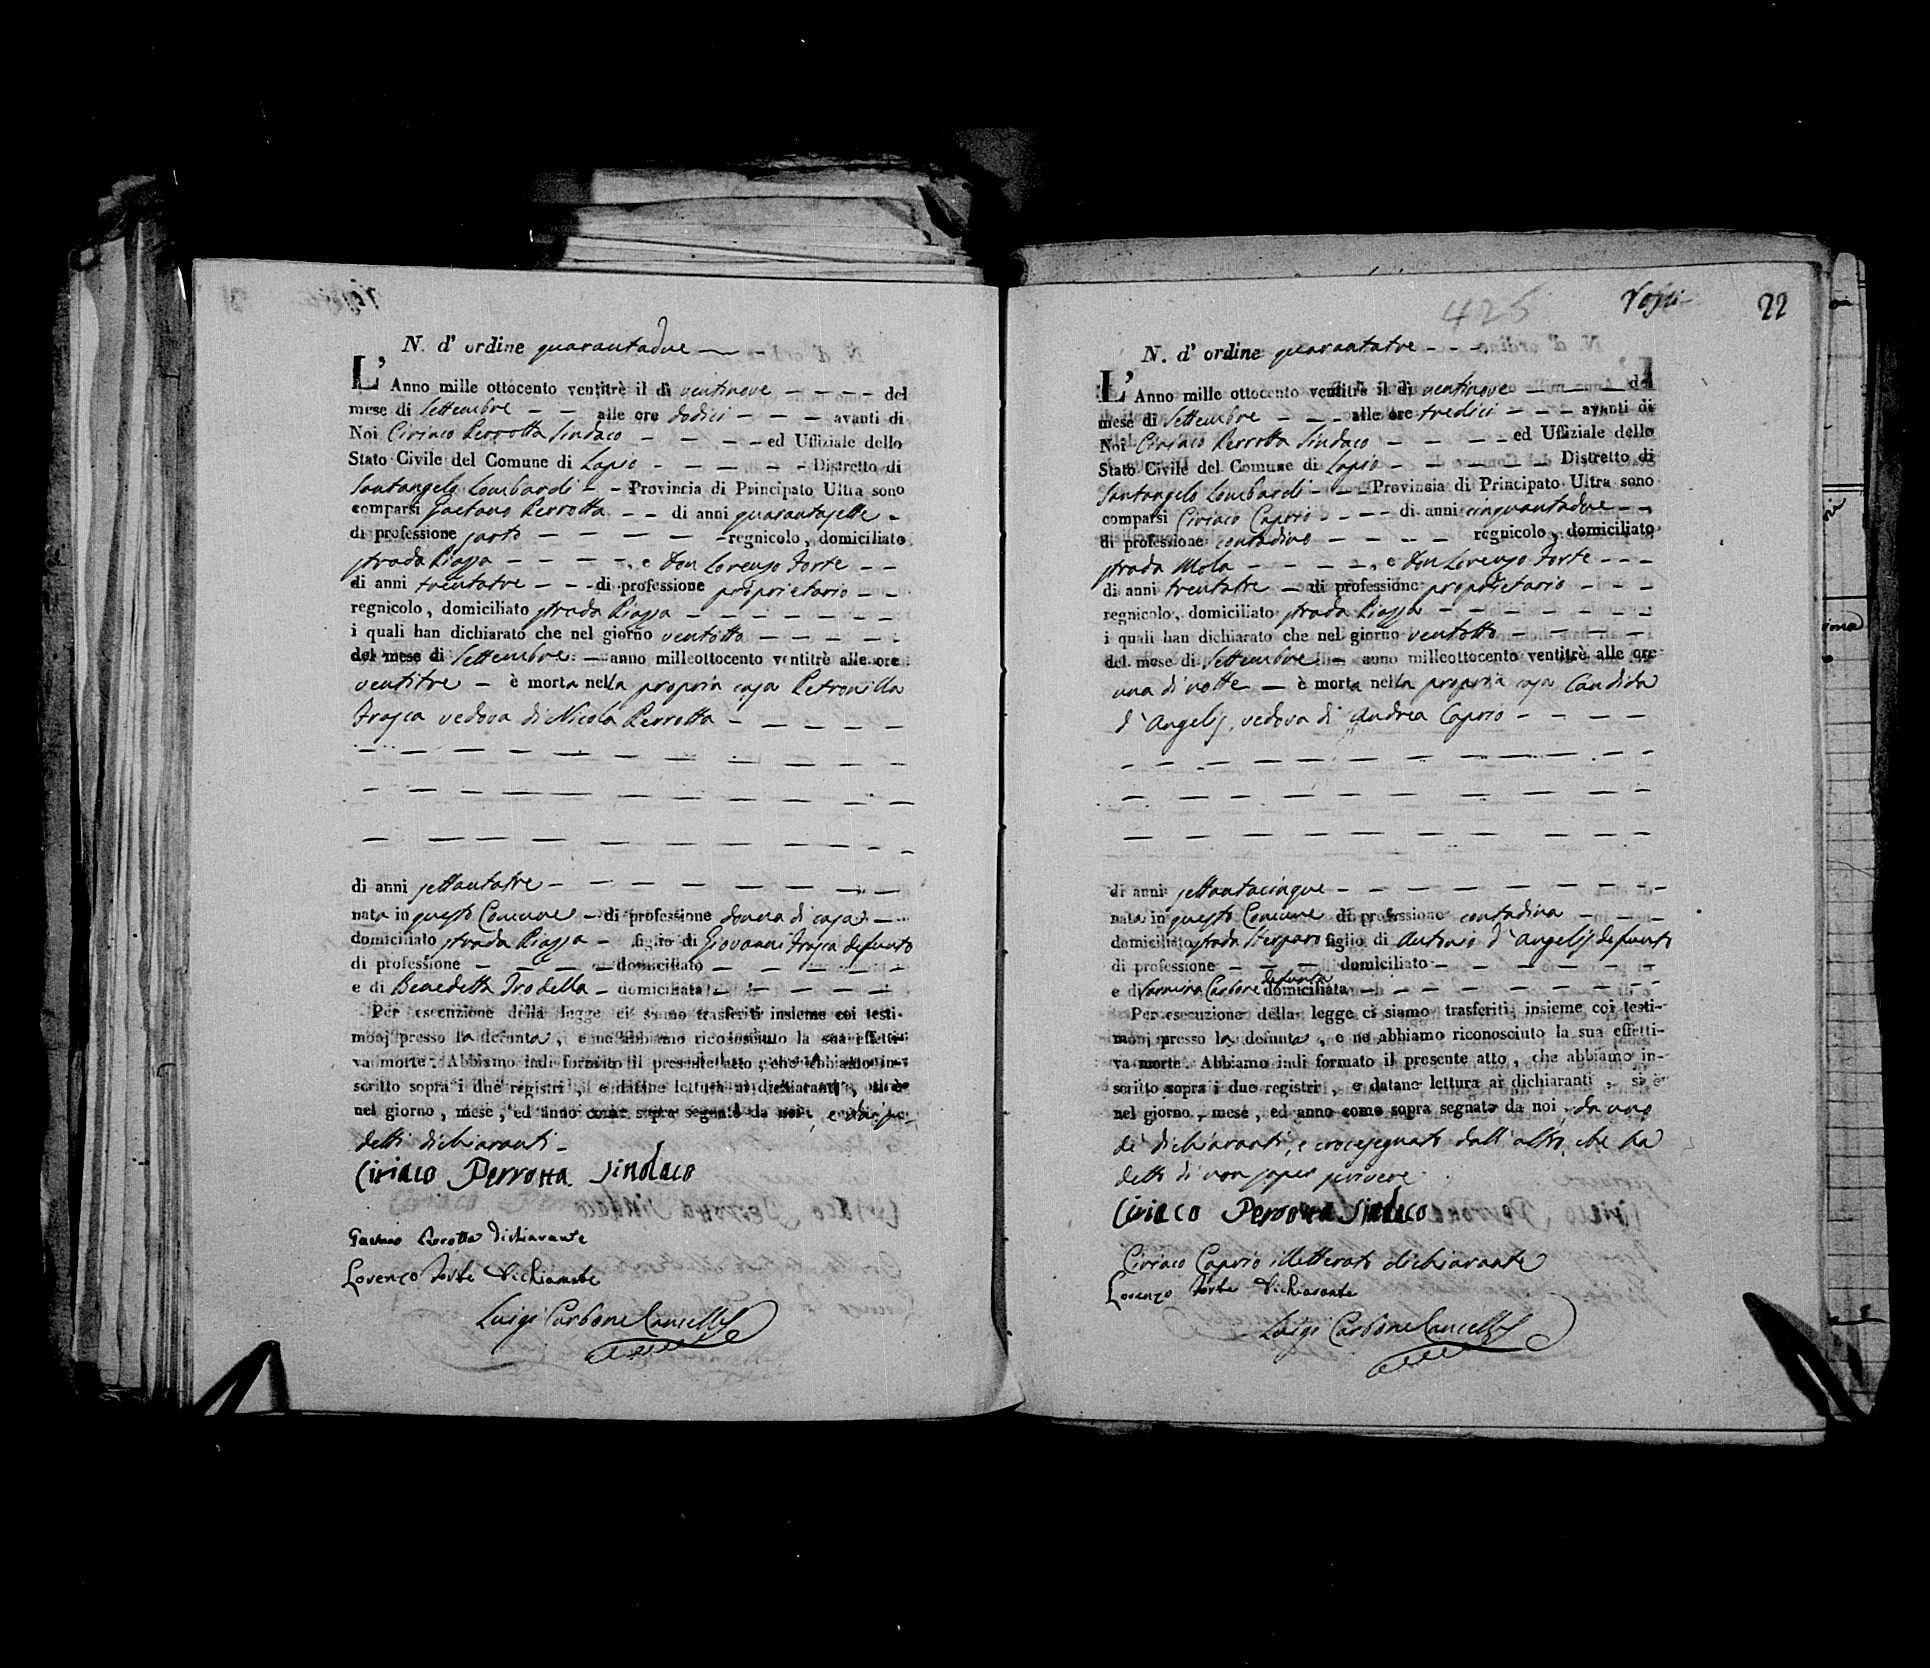 N. d' ordine quarantadue
L' Anno mille ottocento ventitrè il dì ventinove - - - - del
mese di Settembre - - alle ore dodici - - - avanti di
Noi Ciriaco Perrotta Sindaco - - - - ed Uffiziale dello
Stato Civile del Comune di Lapio - - - - - Distretto di
Santangelo Lombardi - - Provincia di Principato Ultra sono
comparsi Gaetano Perrotta - - di anni quarantasette -
di professione sarto - - - - - regnicolo, domiciliato
strada Piazza - - - - -, e Don Lorenzo Forte - -
di anni trentatre - - - di professione proprietario - -
regnicolo, domiciliato strada Piazza - - - - - - -
i quali han dichiarato che nel giorno ventotto - - - - -
del mese di Settembre - anno milleottocento ventitrè alle ore
ventitre - è morta nella propria casa Petronilla
Frasca vedova di Nicola Perrotta - - - - -
di anni settantatre - - - - - - - -
nata in questo Comune - di professione donna di casa - -
domiciliato strada Piazza - figlio di Giovanni Frasca defunto
di professione - - - - domiciliato - - - - -
e di Benedetta Trodella - domiciliata - - - - -
Per esecuzione della legge ci siamo trasferiti insieme coi testi-
monj presso la defunta, e ne abbiamo riconosciuto la sua effetti-
va morte. Abbiamo indi formato il presente atto, che abbiamo in-
scritto sopra i due registri, e datane lettura ai dichiaranti, si è
nel giorno, mese, ed anno come sopra segnato da noi, e dai su-
detti dichiaranti -
Ciriaco Perrotta Sindaco
Gaetano Perrotta dichiarante
Lorenzo Forte Dichiarante
Luigi Carbone Cancell
425
22
N. d' ordine quarantatre - - -
L' Anno mille ottocento ventitrè il dì ventinove - - - - del
mese di Settembre - - - alle ore tredici - - - avanti di
Noi Ciriaco Perrotta Sindaco - - - - - ed Uffiziale dello
Stato Civile del Comune di Lapio - - - - - - Distretto di
Santangelo Lombardi - - - Provincia di Principato Ultra sono
comparsi Ciriaco Caprio - - - - di anni cinquantadue - -
di professione contadino - - - - - regnicolo, domiciliato
strada Mola - - - - -, e Don Lorenzo Forte - - -
di anni trentatre - di professione proprietario - - -
regnicolo, domiciliato strada Piazza - - - - - - -
i quali han dichiarato che nel giorno ventotto - - - - -
del mese di Settembre - anno milleottocento ventitrè alle ore
una di notte - è morta nella propria casa Candida
d'Angelis, vedova di Andrea Caprio - - - -
di anni settantacinque - - - - - - - -
nata in questo Comune di professione contadina - - -
domiciliato strada figlio di Antonio d'Angelis defunto
di professione - - - domiciliato - - - - - -
defunta
e di Carbone domiciliata - - - - - -
Per esecuzione della legge ci siamo trasferiti insieme coi testi-
monj presso la defunta, e ne abbiamo riconosciuto la sua effetti-
va morte. Abbiamo indi formato il presente atto, che abbiamo in-
scritto sopra i due registri, e datane lettura ai dichiaranti, si è
nel giorno, mese, ed anno come sopra segnato da noi, da uno
de' dichiaranti, e crocesegnato dall' altro, che ha
detto di non saper scrivere
Ciriaco Perrotta Sindaco
Ciriaco Caprio illetterato dichiarante
Lorenzo Forte Dichiarante
Luigi Carbone Cancell